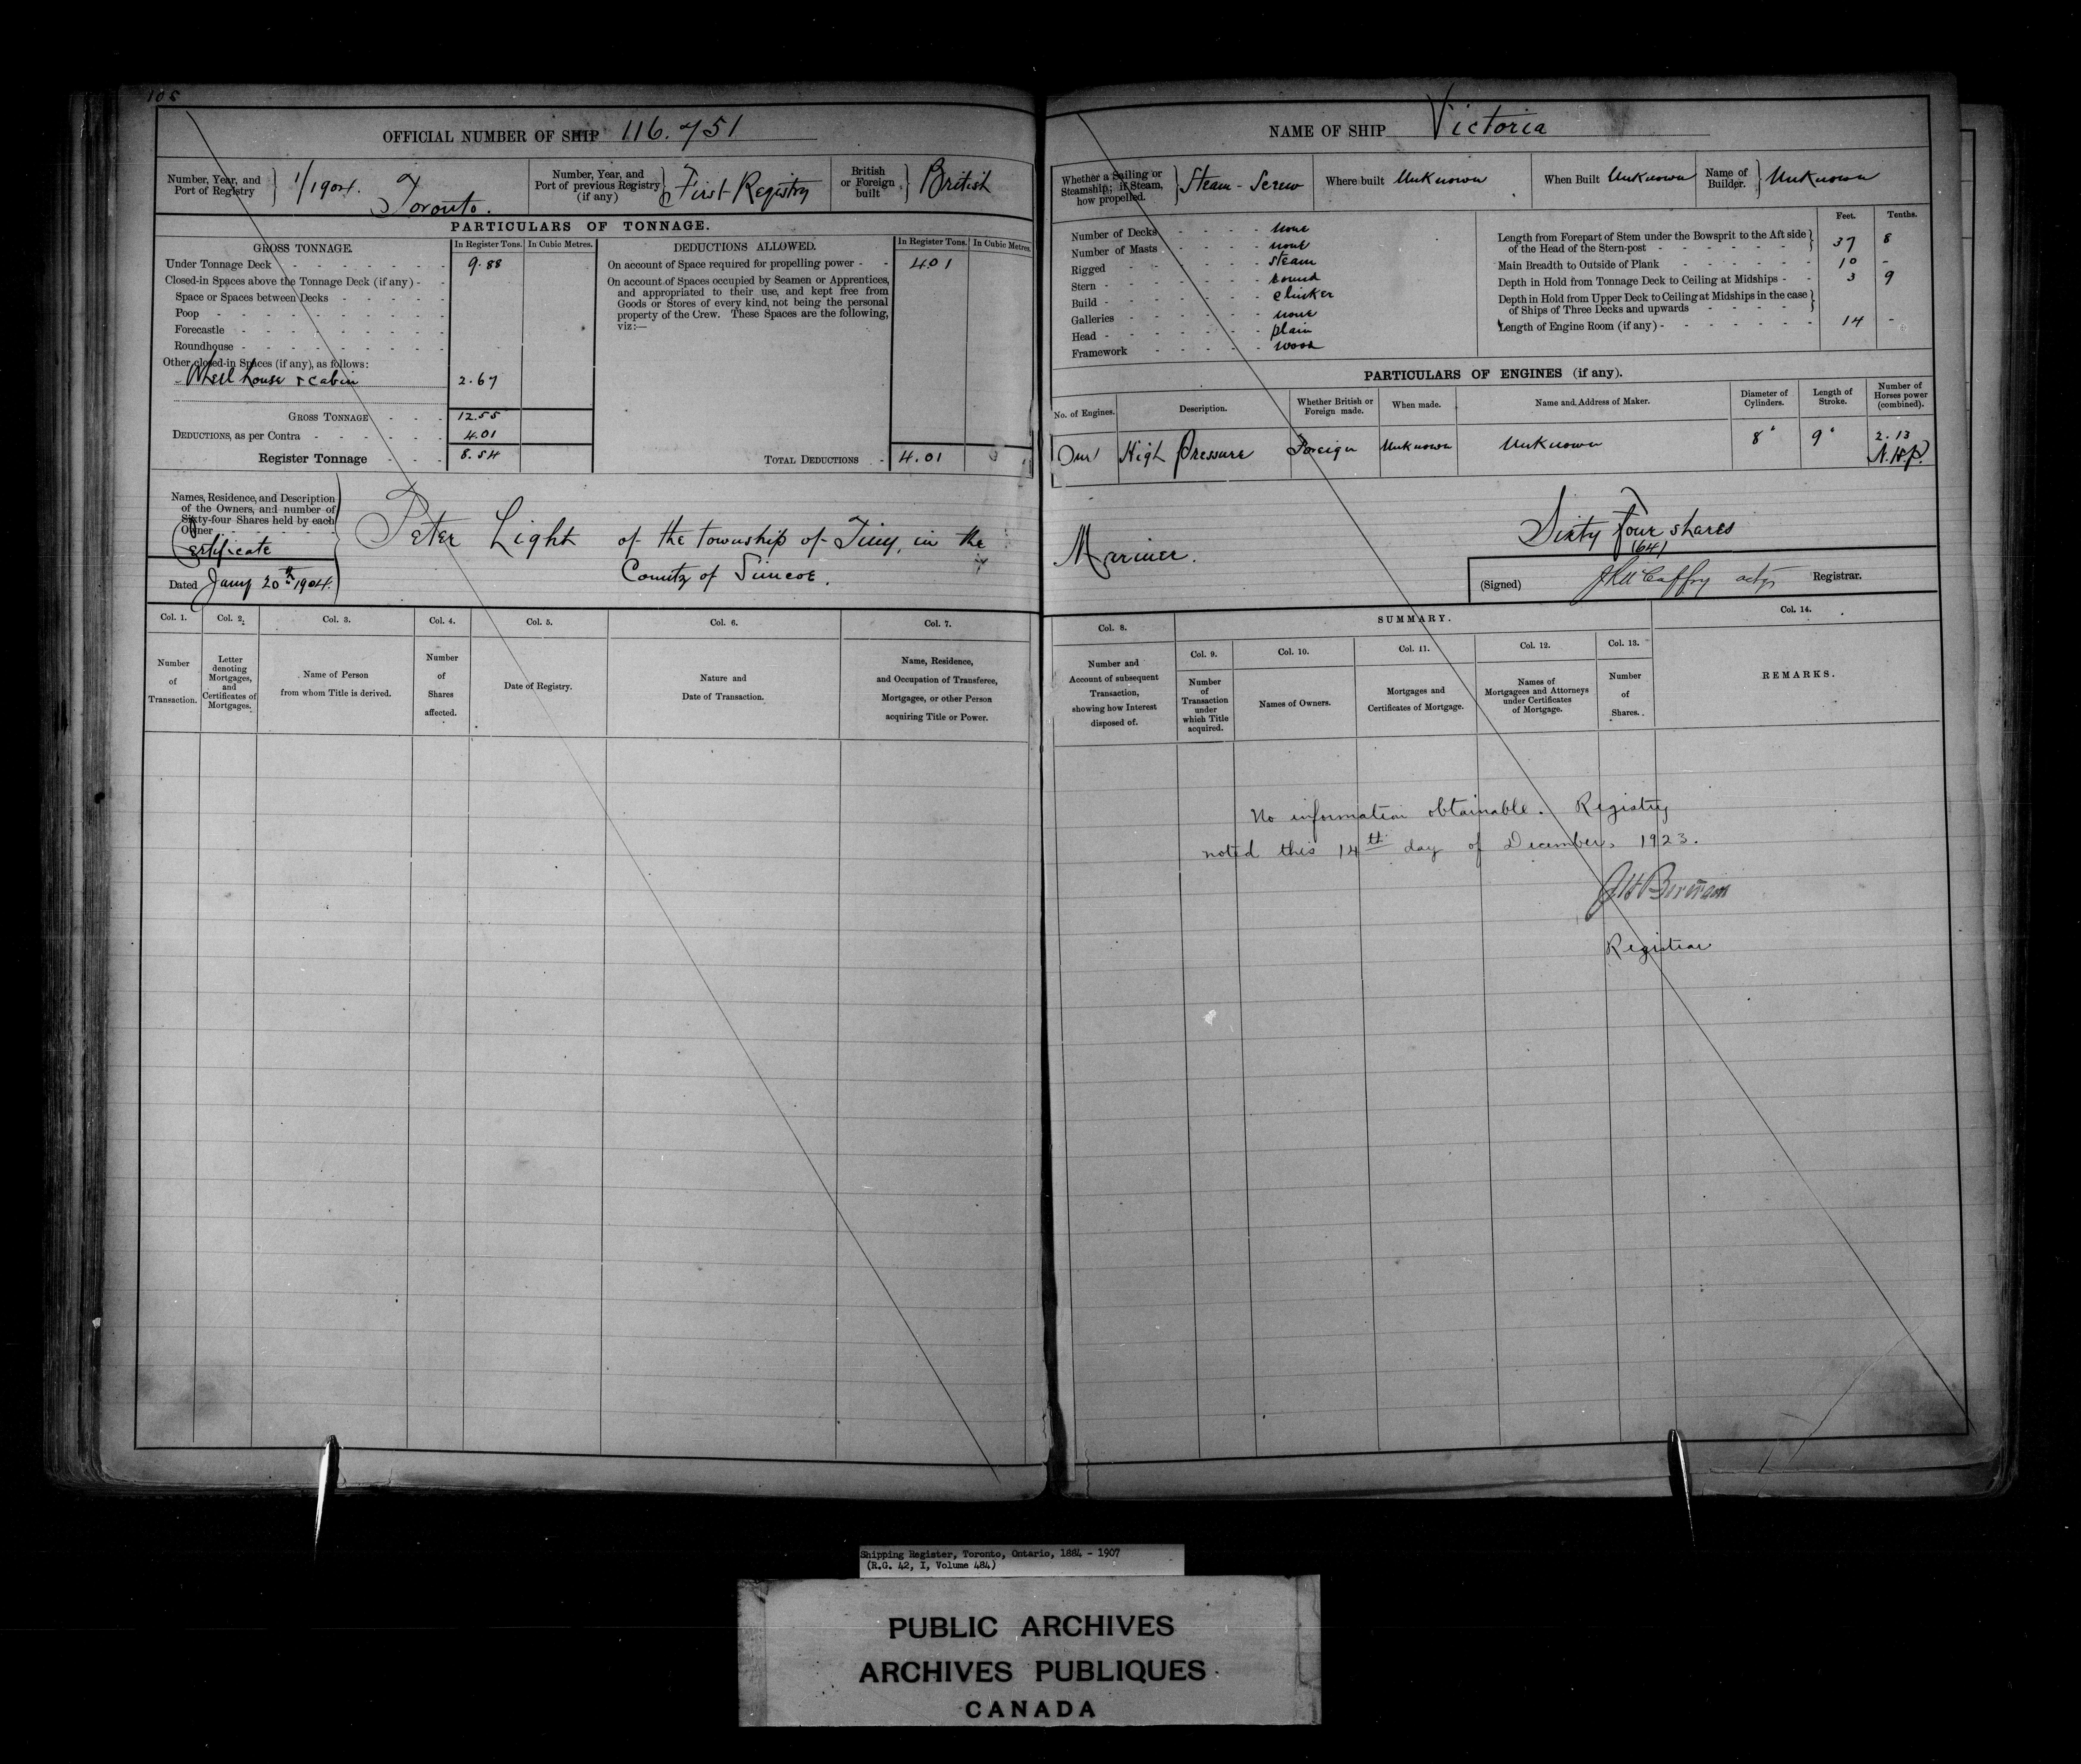 105
OFFICIAL NUMBER OF SHIP 116.751
Number, Year, and Port of Registry 1/1904. Toronto.
Number, Year, and Port of previous Registry (if any) First Registry
British or Foreign built British
PARTICULARS OF TONNAGE.
GROSS TONNAGE. In Register Tons. In Cubic Metres.
Under Tonnage Deck 9.88
Closed-in Spaces above the Tonnage Deck (if any)
Space or Spaces between Decks
Poop
Forecastle
Roundhouse
Other closed-in Spaces (if any), as follows:
Wheel house & cabin 2.67
GROSS TONNAGE 12.55
DEDUCTIONS, as per Contra 4.01
Register Tonnage 8.54
DEDUCTIONS ALLOWED. In Register Tons. In Cubic Metres.
On account of Space required for propelling power 4.01
On account of Spaces occupied by Seamen or Apprentices,
and appropriated to their use, and kept free from
Goods or Stores of every kind, not being the personal
property of the Crew. These Spaces are the following,
viz:—
TOTAL DEDUCTIONS 4.01
Names, Residence, and Description
of the Owners, and number of
Sixty-four Shares held by each
Owner
Certificate
Dated Jany 20th 1904.
Peter Light of the township of Tiny, in the
County of Simcoe.
Col. 1. Col. 2. Col. 3. Col. 4. Col. 5. Col. 6. Col. 7.
Number of Transaction.
Letter denoting Mortgages, and Certificates of Mortgages.
Name of Person from whom Title is derived.
Number of Shares affected.
Date of Registry.
Nature and Date of Transaction.
Name, Residence, and Occupation of Transferee, Mortgagee, or other Person acquiring Title or Power.
NAME OF SHIP Victoria
Whether a Sailing or Steamship; if Steam, how propelled. Steam - Screw
Where built Unknown
When Built Unknown
Name of Builder. Unknown
Number of Decks none
Number of Masts none
Rigged steam
Stern round
Build clinker
Galleries none
Head plain
Framework wood
Feet. Tenths.
Length from Forepart of Stem under the Bowsprit to the Aft side
of the Head of the Stern-post 37 8
Main Breadth to Outside of Plank 10 -
Depth in Hold from Tonnage Deck to Ceiling at Midships 3 9
Depth in Hold from Upper Deck to Ceiling at Midships in the case
of Ships of Three Decks and upwards
Length of Engine Room (if any) 14 -
PARTICULARS OF ENGINES (if any).
No. of Engines. Description. Whether British or Foreign made. When made. Name and Address of Maker. Diameter of Cylinders. Length of Stroke. Number of Horses power (combined).
One High Pressure Foreign Unknown Unknown 8" 9" 2.13 N.H.P.
Mariner.
Sixty four shares
(64)
(Signed) actg Registrar.
Col. 8.
Number and Account of subsequent Transaction, showing how Interest disposed of.
SUMMARY.
Col. 9. Col. 10. Col. 11. Col. 12. Col. 13. Col. 14.
Number of Transaction under which Title acquired.
Names of Owners.
Mortgages and Certificates of Mortgage.
Names of Mortgagees and Attorneys under Certificates of Mortgage.
Number of Shares.
REMARKS.
No information obtainable. Registry
noted this 14th day of December, 1923.
Registrar
Shipping Register, Toronto, Ontario, 1884 - 1907
(R.G. 42, I, Volume 484)
PUBLIC ARCHIVES
ARCHIVES PUBLIQUES
CANADA